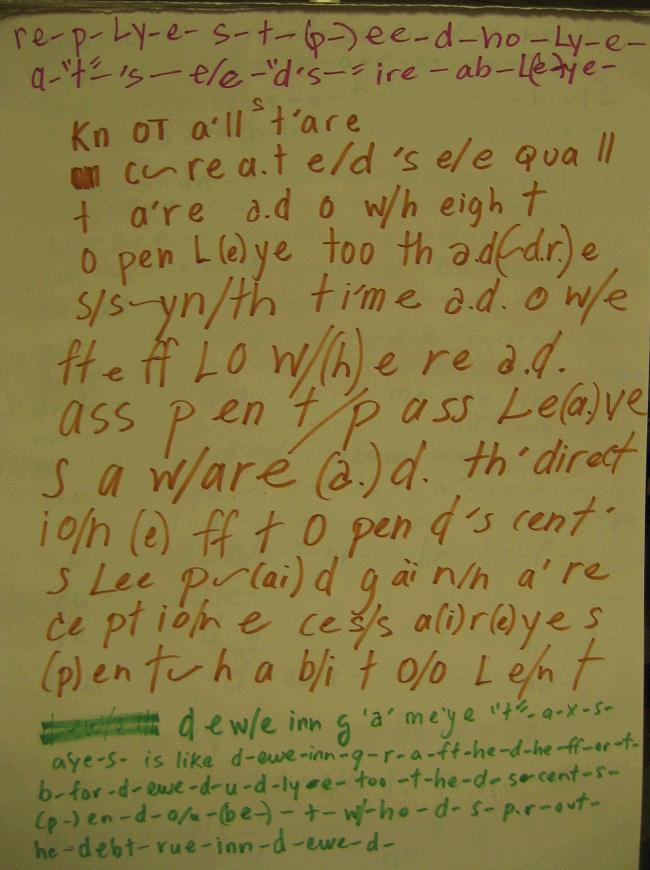 re-p-Ly-e- s-t-(p-)ee-d-ho-Ly-e-
a-"t"-'s-e/e-"d's-ire-ab-L(e)ye-
Kn OT a'll s t'are
cure a.t e/d 's e/e qua ll
t a're a.d o w/h eigh t
o pen L(e)ye too th a.d(-d.r.)e
s/s-yn/th time a.d. o w/e
ff e ff LO w/(h)e re a.d.
ass p en t/p ass Le(a.)ve
s a w/are (a.)d. th'direct
io/n (e) ff t O pen d's cent'
s Lee pu(ai)d g ai n/n a're
ce pt io/n e ces/s a(i)r(e)ye s
(p)en tuh a b/i t o/o L e/n t
d ew/e inn g 'a' me'ye "t"-a-x-s-
a'ye-s- is like d-ewe-inn-g-r-a-ft-he-d-he-ff-or-t-
b-for-d-ewe-d-u-d-ly-e- too -t-he-d-s-cent-s-
(p-)en-d-o/u-(be-)-t-w/-ho-d-s-p.r-out-
he-debt-rue-inn-d-ewe-d-